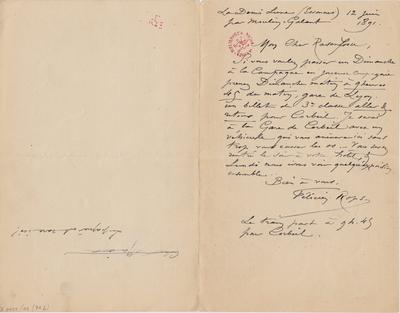 La Demi Lune (Essonnes) 12 juin
par Moulin-Galant 1891.
Mon Cher Rassenfosse,
Si vous voulez passer un Dimanche
à la Campagne en joyeuse compagnie
prenez Dimanche matin à 9 heures
45 du matin, gare de Lyon,
un billet de 3me classe aller &
retour pour Corbeil. Je serai
à la Gare de Corbeil avec un
véhicule qui vous amènera ici sans
trop vous casser les os. – Vous serez
rentré le soir à votre hôtel, &
Lundi nous irons voir quelques
ensemble.
Bien à vous.
Félicien Rops
Le train part à 9h.45
pour Corbeil.